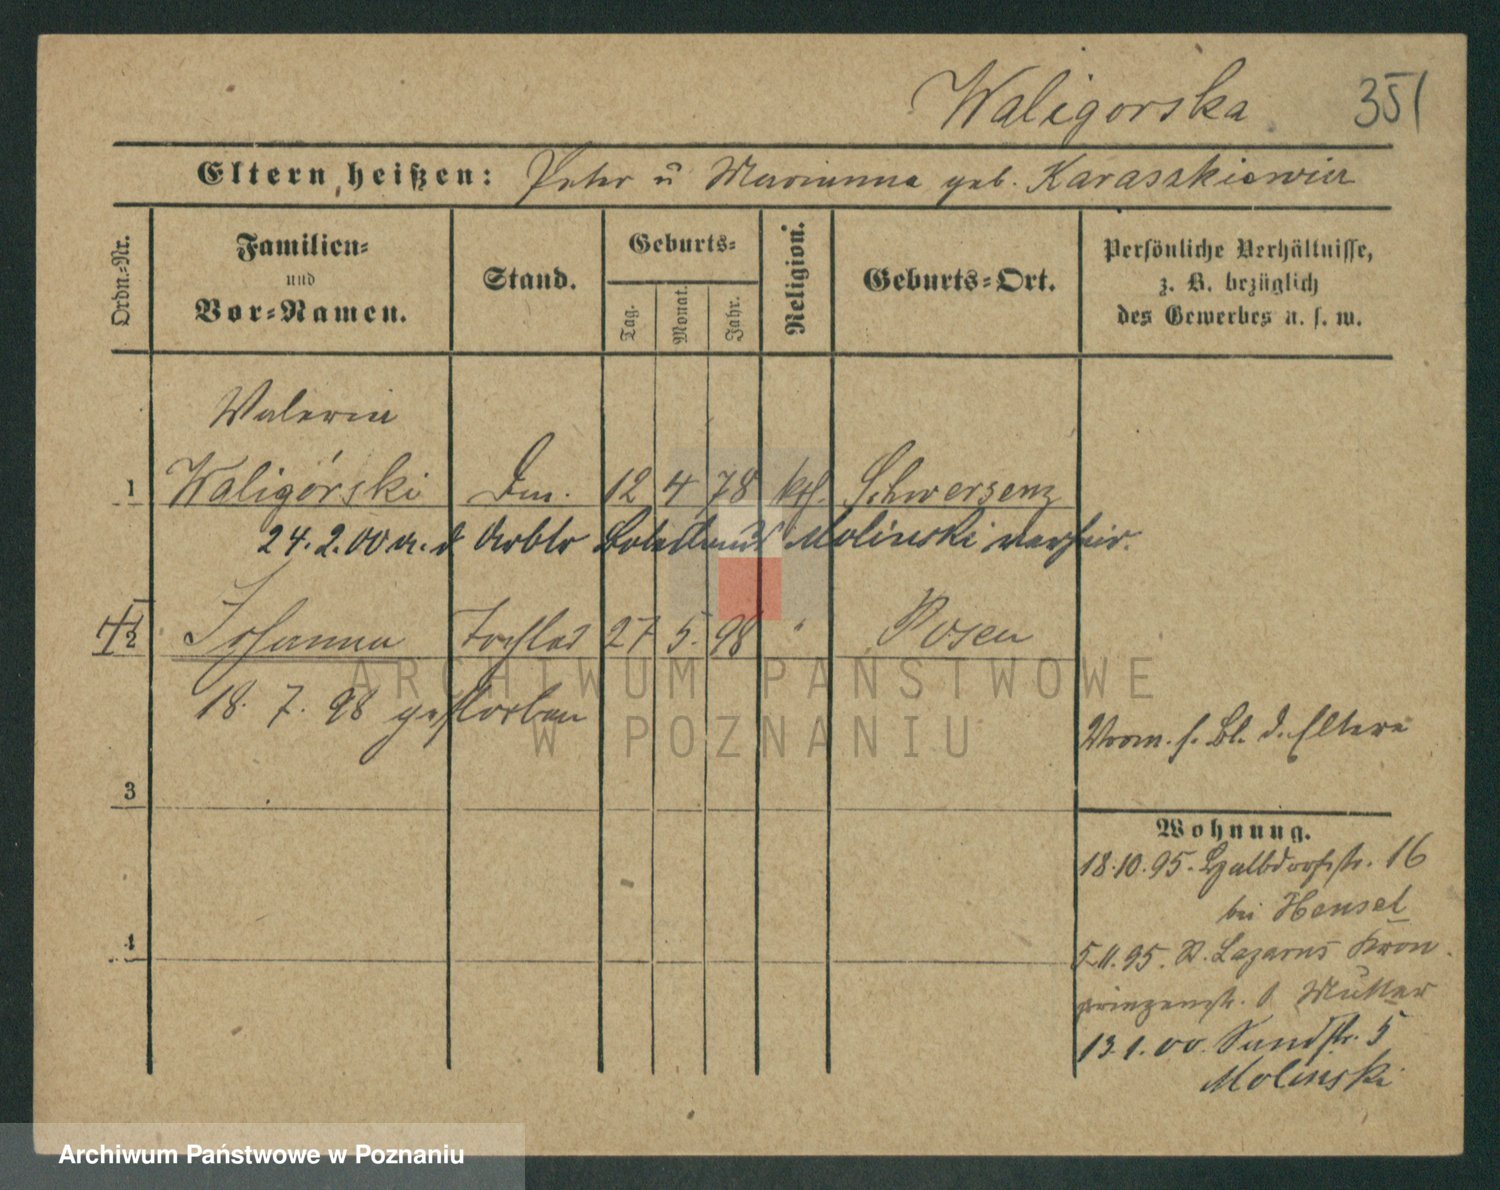 Waligorska 351
Eltern heißen: Peter u Marianna geb. Karaszkiewicz
Ordn.-Nr.
Familien-
und
Vor-Namen.
Stand.
Geburts-
Tag.
Monat.
Jahr.
Religion.
Geburts-Ort.
Persönliche Verhältnisse,
z. B. bezüglich
des Gewerbes u. s. w.
Waleria
1 Waligórski 12 4 78 kth. Schwersenz
24.2.00 a. d Arbtr Molinski verheir.
2 Johanna Tochter 27 5. 98 " Posen
18. 7. 98 gestorben
Vorm. s. Bl. d. Eltern
3
Wohnung.
18.10.95. Halbdorfstr. 16
bei Hensel
4
5.11.95. St. Lazarus Kron
prinzenstr. Mutter
13.1.00. Sandstr. 5
Molinski
ARCHIWUM PAŃSTWOWE
W POZNANIU
Archiwum Państwowe w Poznaniu